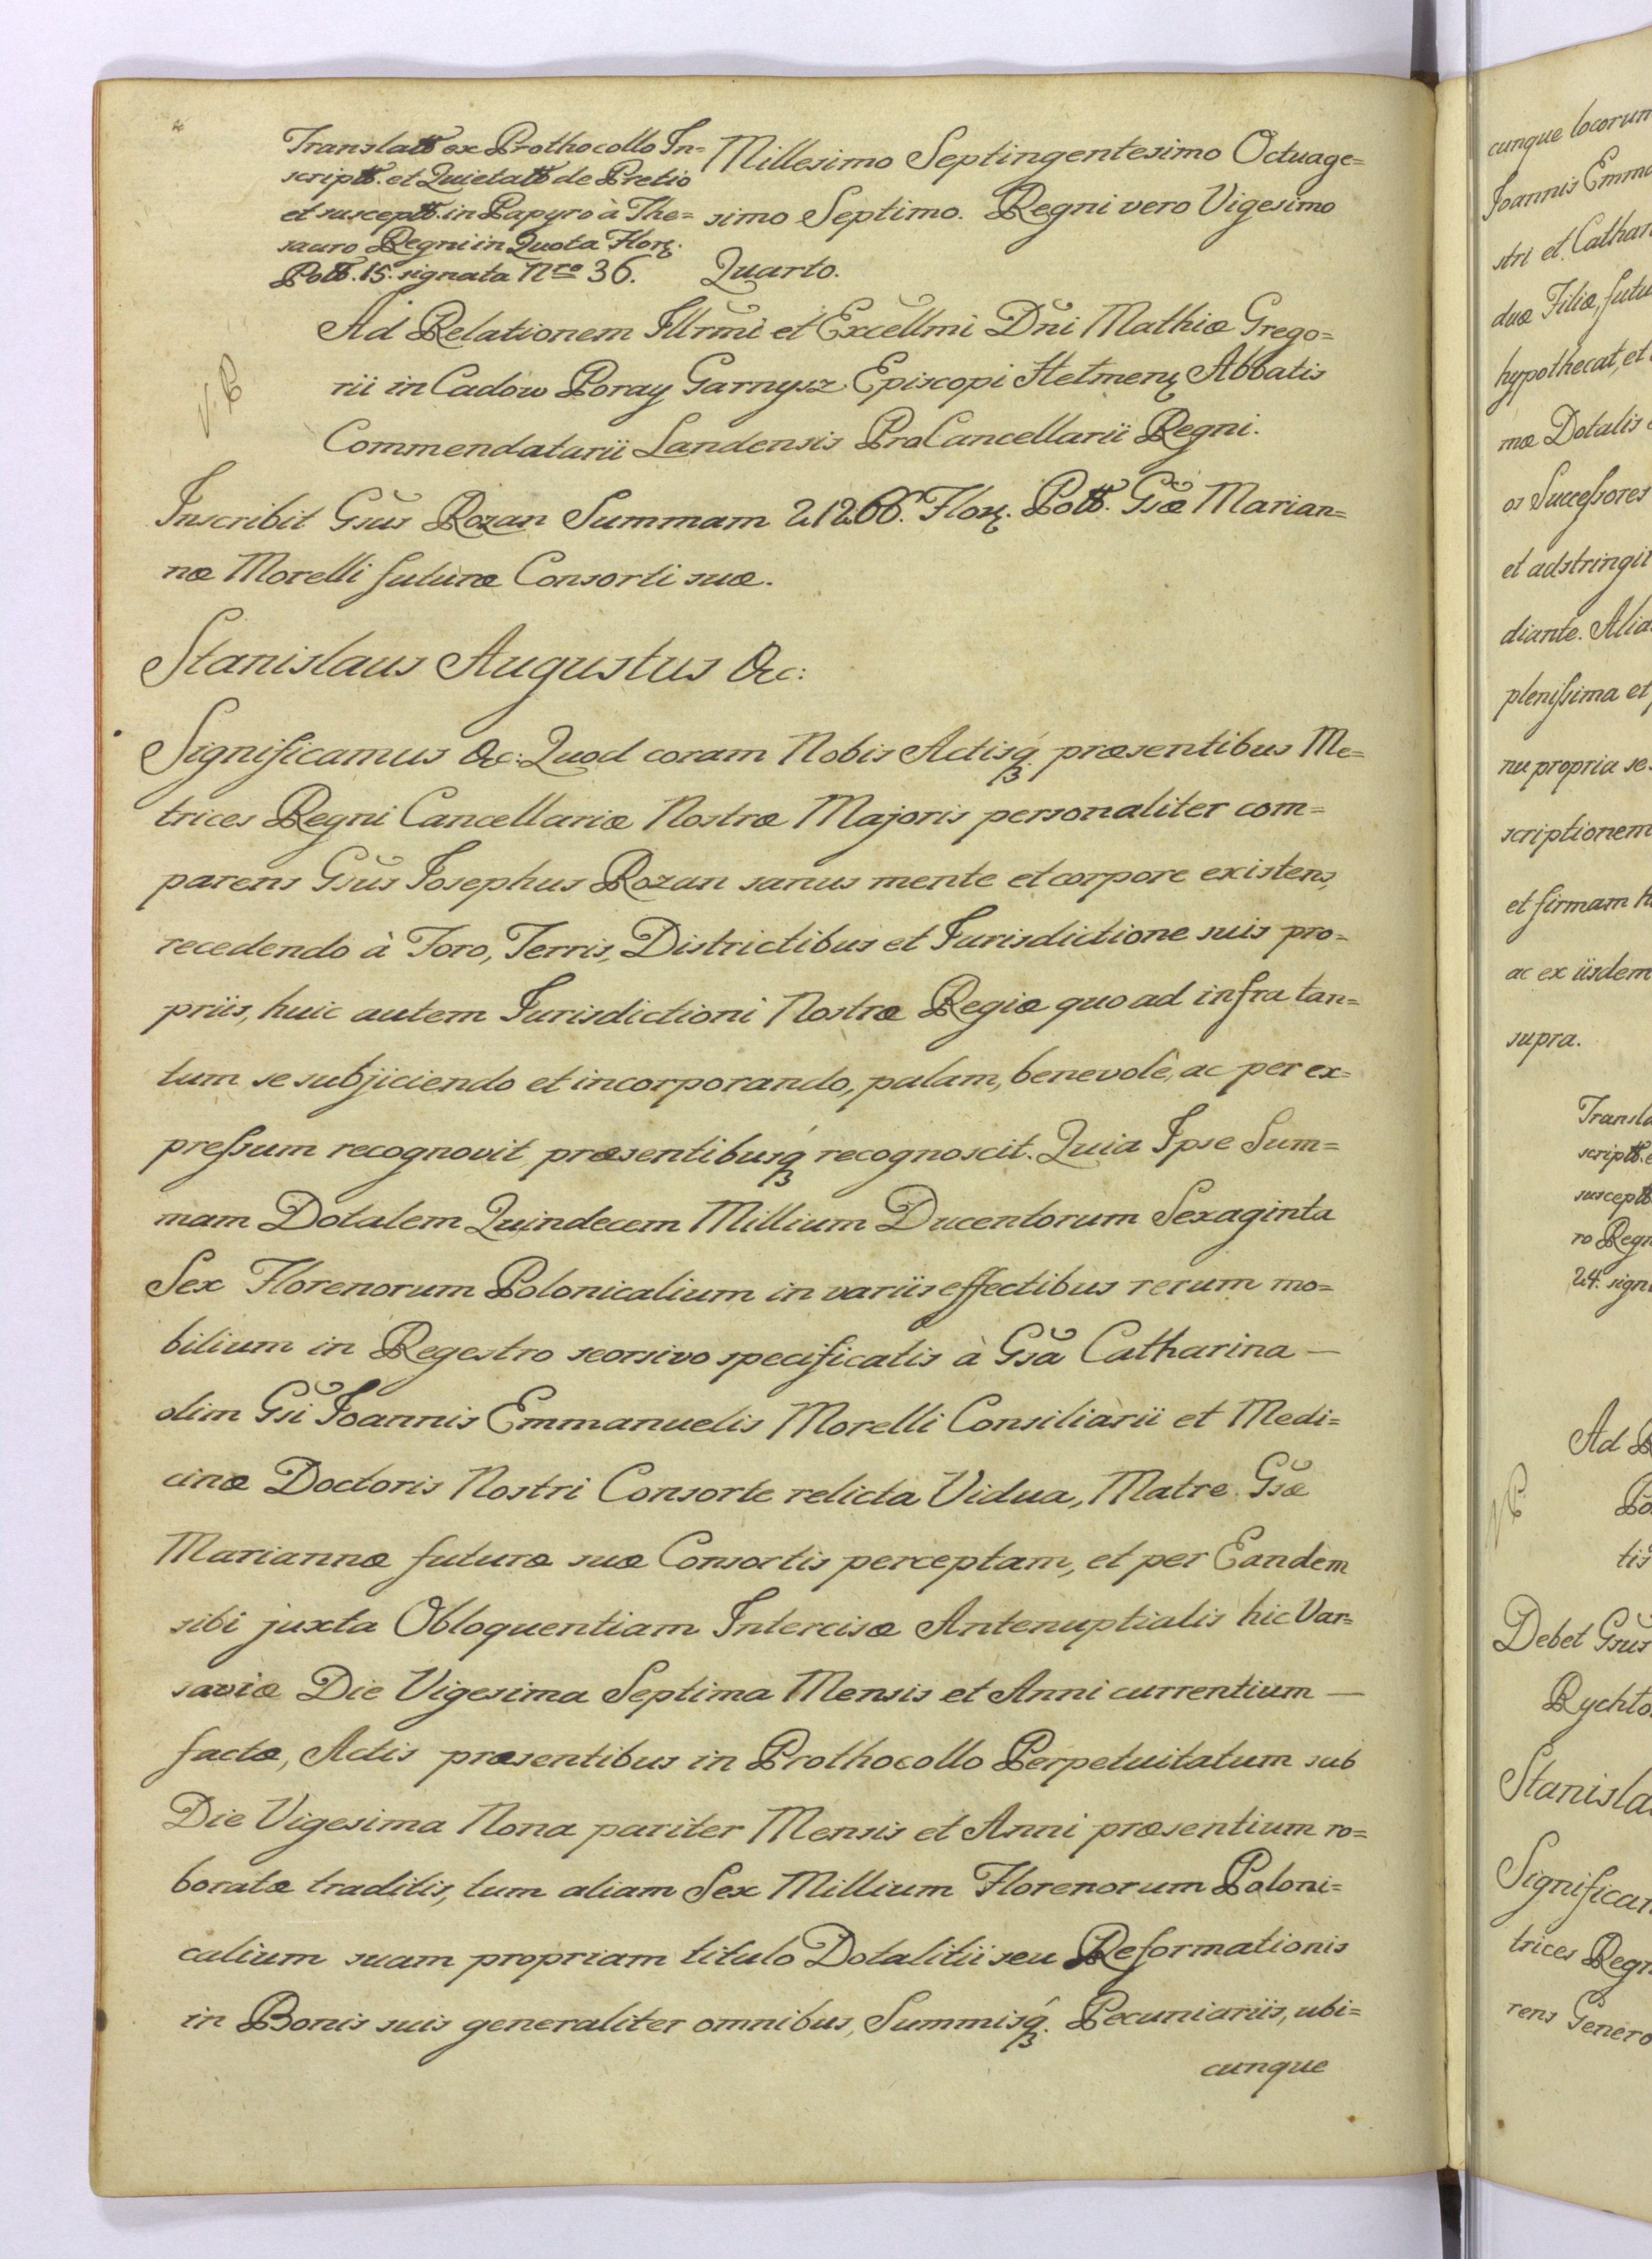 Translatt ex Prothocollo In=
scriptt. et Quietatt de Pretio
et susceptt. in Papyro à The=
sauro Regni in Quota Flor.
Poltt. 15. signata Nro 36.
Millesimo Septingentesimo Octuage=
simo Septimo. Regni vero Vigesimo
Quarto.
Ad Relationem Illrmi et Excellmi Dni Mathiæ Grego=
rii in Cadow Poray Garnysz Episcopi Helmen. Abbatis
Commendatarii Landensis ProCancellarii Regni.
Inscribit Gsus Rozan Summam 21266. Flor. Poltt. Gsæ Marian=
næ Morelli futuræ Consorti suæ.
Stanislaus Augustus &c:
Significamus &c: Quod coram Nobis Actisq́ præsentibus Me=
trices Regni Cancellariæ Nostræ Majoris personaliter com=
parens Gsus Josephus Rozan sanus mente et corpore existens,
recedendo à Foro, Terris, Districtibus et Jurisdictione suis pro=
priis, huic autem Jurisdictioni Nostræ Regiæ quo ad infra tan=
tum se subjiciendo et incorporando, palam, benevolè, ac per ex=
pressum recognovit præsentibusq́ recognoscit. Quia Ipse Sum=
mam Dotalem Quindecem Millium Ducentorum Sexaginta
Sex Florenorum Polonicalium in variis effectibus rerum mo=
bilium in Regestro seorsivo specificatis à Gsa Catharina —
olim Gsi Joannis Emmanuelis Morelli Consiliarii et Medi=
cinæ Doctoris Nostri Consorte relicta Vidua, Matre Gsæ
Mariannæ futuræ suæ Consortis perceptam, et per Eandem
sibi juxta Obloquentiam Intercisæ Antenuptialis hic Var=
saviæ Die Vigesima Septima Mensis et Anni currentium —
factæ, Actis præsentibus in Prothocollo Perpetuitatum sub
Die Vigesima Nona pariter Mensis et Anni præsentium ro=
boratæ traditis, tum aliam Sex Millium Florenorum Poloni=
calium suam propriam titulo Dotalitii seu Reformationis
in Bonis suis generaliter omnibus, Summisq́. Pecuniariis, ubi=
cunque
cunque locorum
Joannis Emma
stri et Cathar
duæ Filiæ, futu
hypothecat, et
mæ Dotalis
os Successores
et adstringit
diante. Alia
plenissima et
nu propria se
scriptionem
et firmam h
ac ex iisdem
supra.
Transla
scriptt. e
susceptt
ro Regn
24. sign
Ad R
Po
tis
Debet Gsus
Rychto
Stanisla
Significam
trices Regn
rens Genero